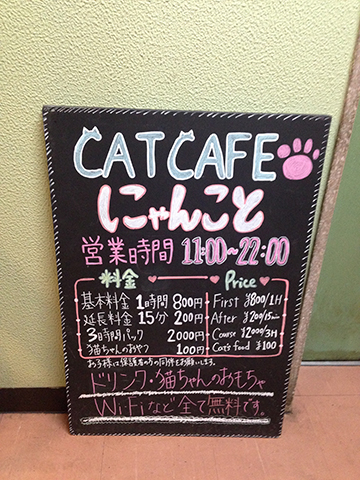 CAT CAFE
にゃんこと
営業時間 11:00~22:00
料金 Price
基本料金 1時間 800円 First ¥800/1H
延長料金 15分 200円 After ¥200/15min
3時間パック 2000円 Course ¥2000/3H
猫ちゃんのおやつ 100円 Cat's food ¥100
お子様は保護者の方の同伴をお願いします。
ドリンク・猫ちゃんのおもちゃ
WiFiなど全て無料です。